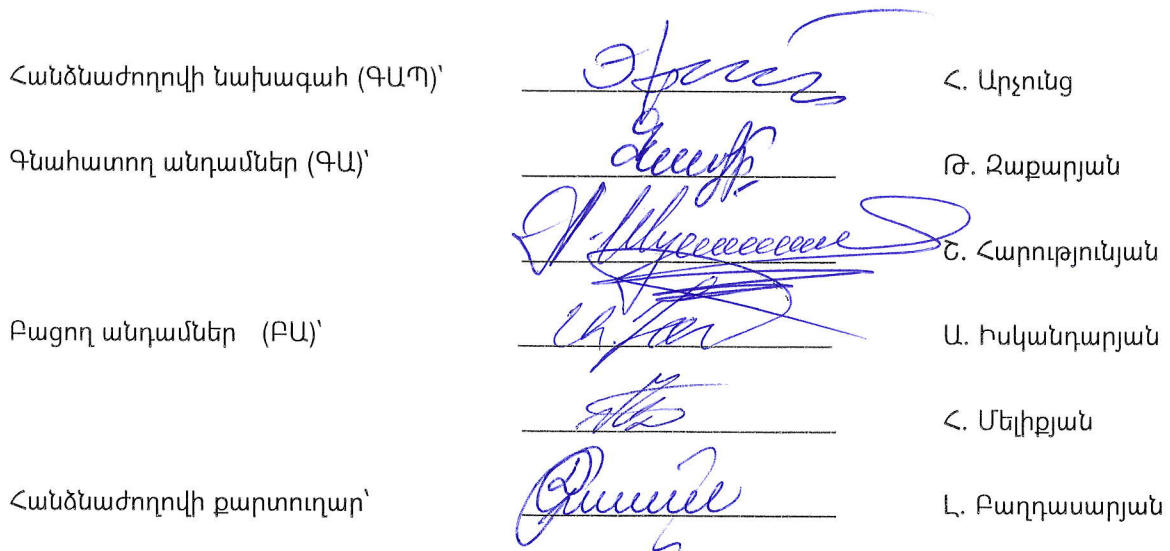 Հանձնաժողովի նախագահ (ԳԱՊ)՝ Հ. Արչունց
Գնահատող անդամներ (ԳԱ)՝ Թ. Զաքարյան
Շ. Հարությունյան
Բացող անդամներ (ԲԱ)՝ Ա. Իսկանդարյան
Հ. Մելիքյան
Հանձնաժողովի քարտուղար՝ Լ. Բաղդասարյան